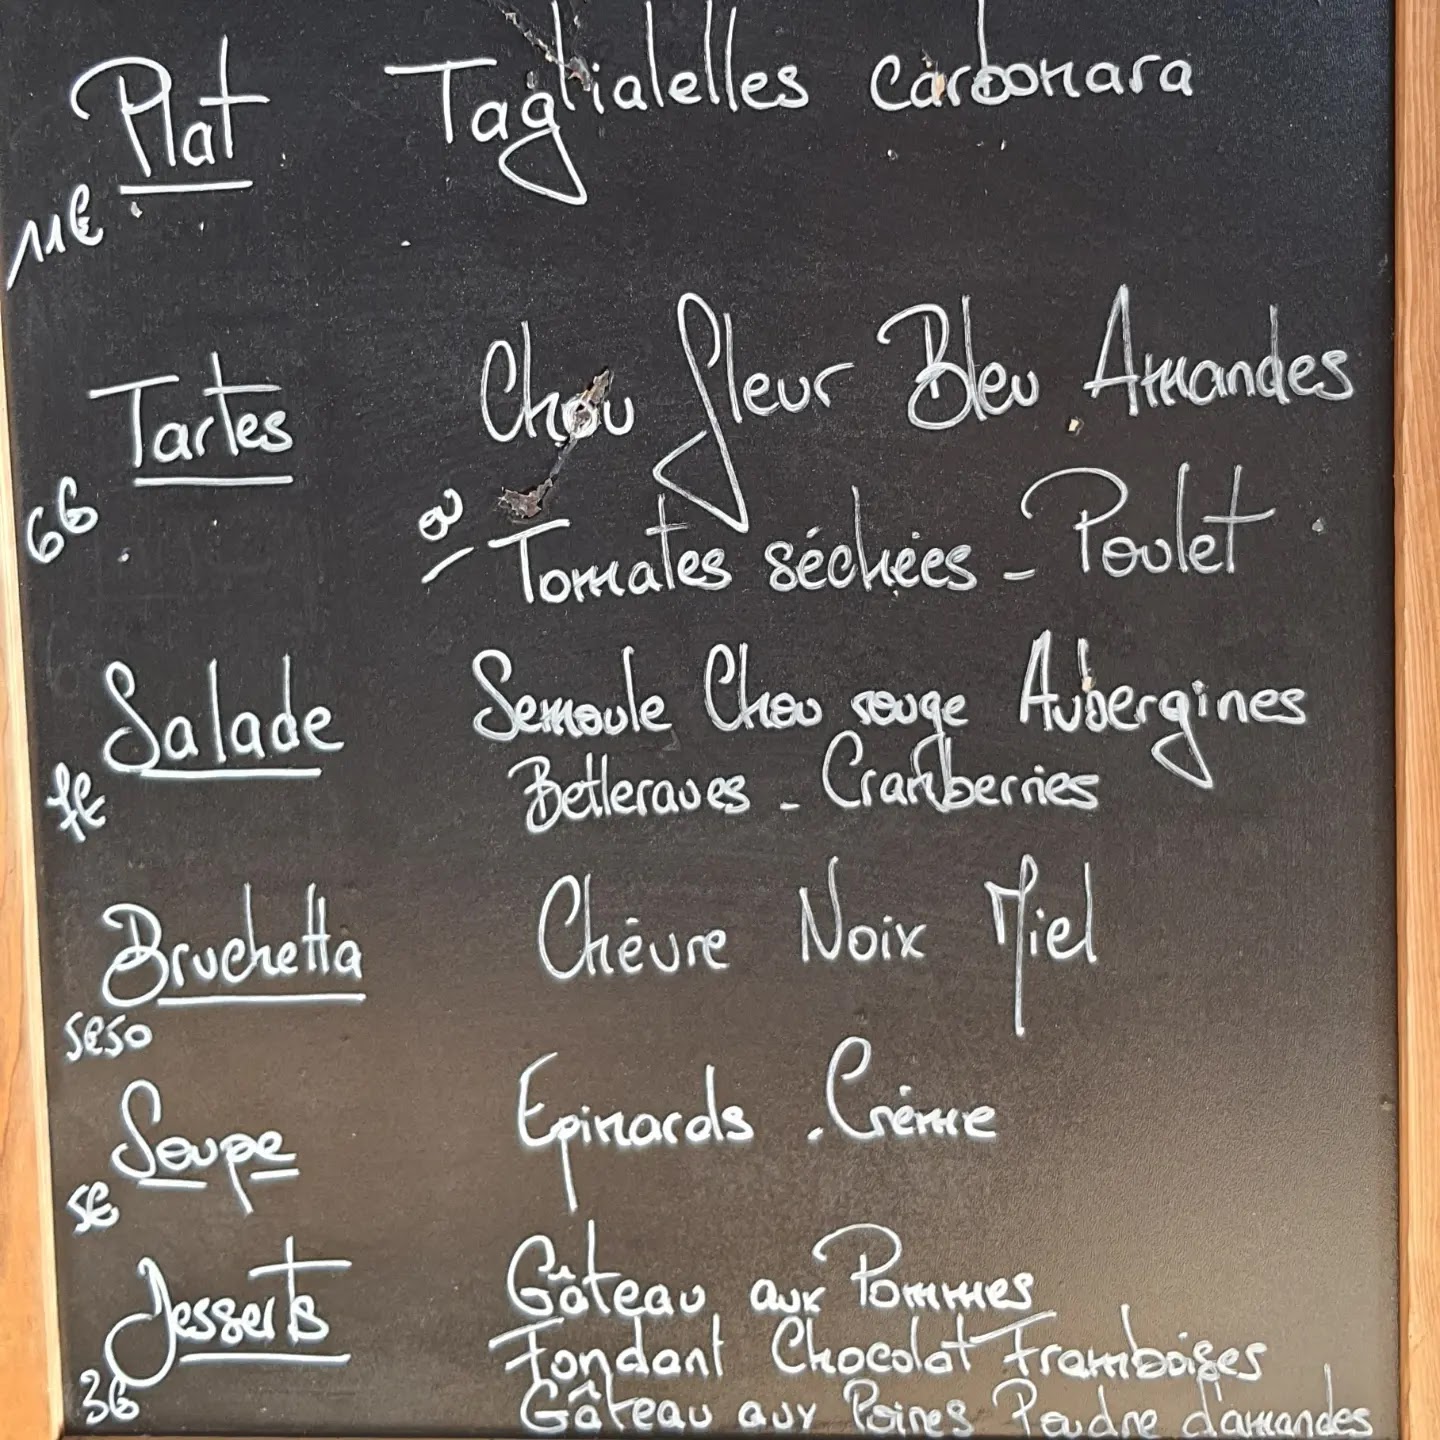 Plat Tagliatelles carbonara
11€
Tartes Chou fleur Bleu Amandes
6€
ou Tomates séchées - Poulet
Salade Semoule Chou rouge Aubergines
7€ Betteraves - Cranberries
Bruchetta Chèvre Noix Miel
5€50
Soupe Epinards - Crème
5€
Desserts Gâteau aux Pommes
Fondant Chocolat Framboises
3€ Gâteau aux Poires Poudre d'amandes